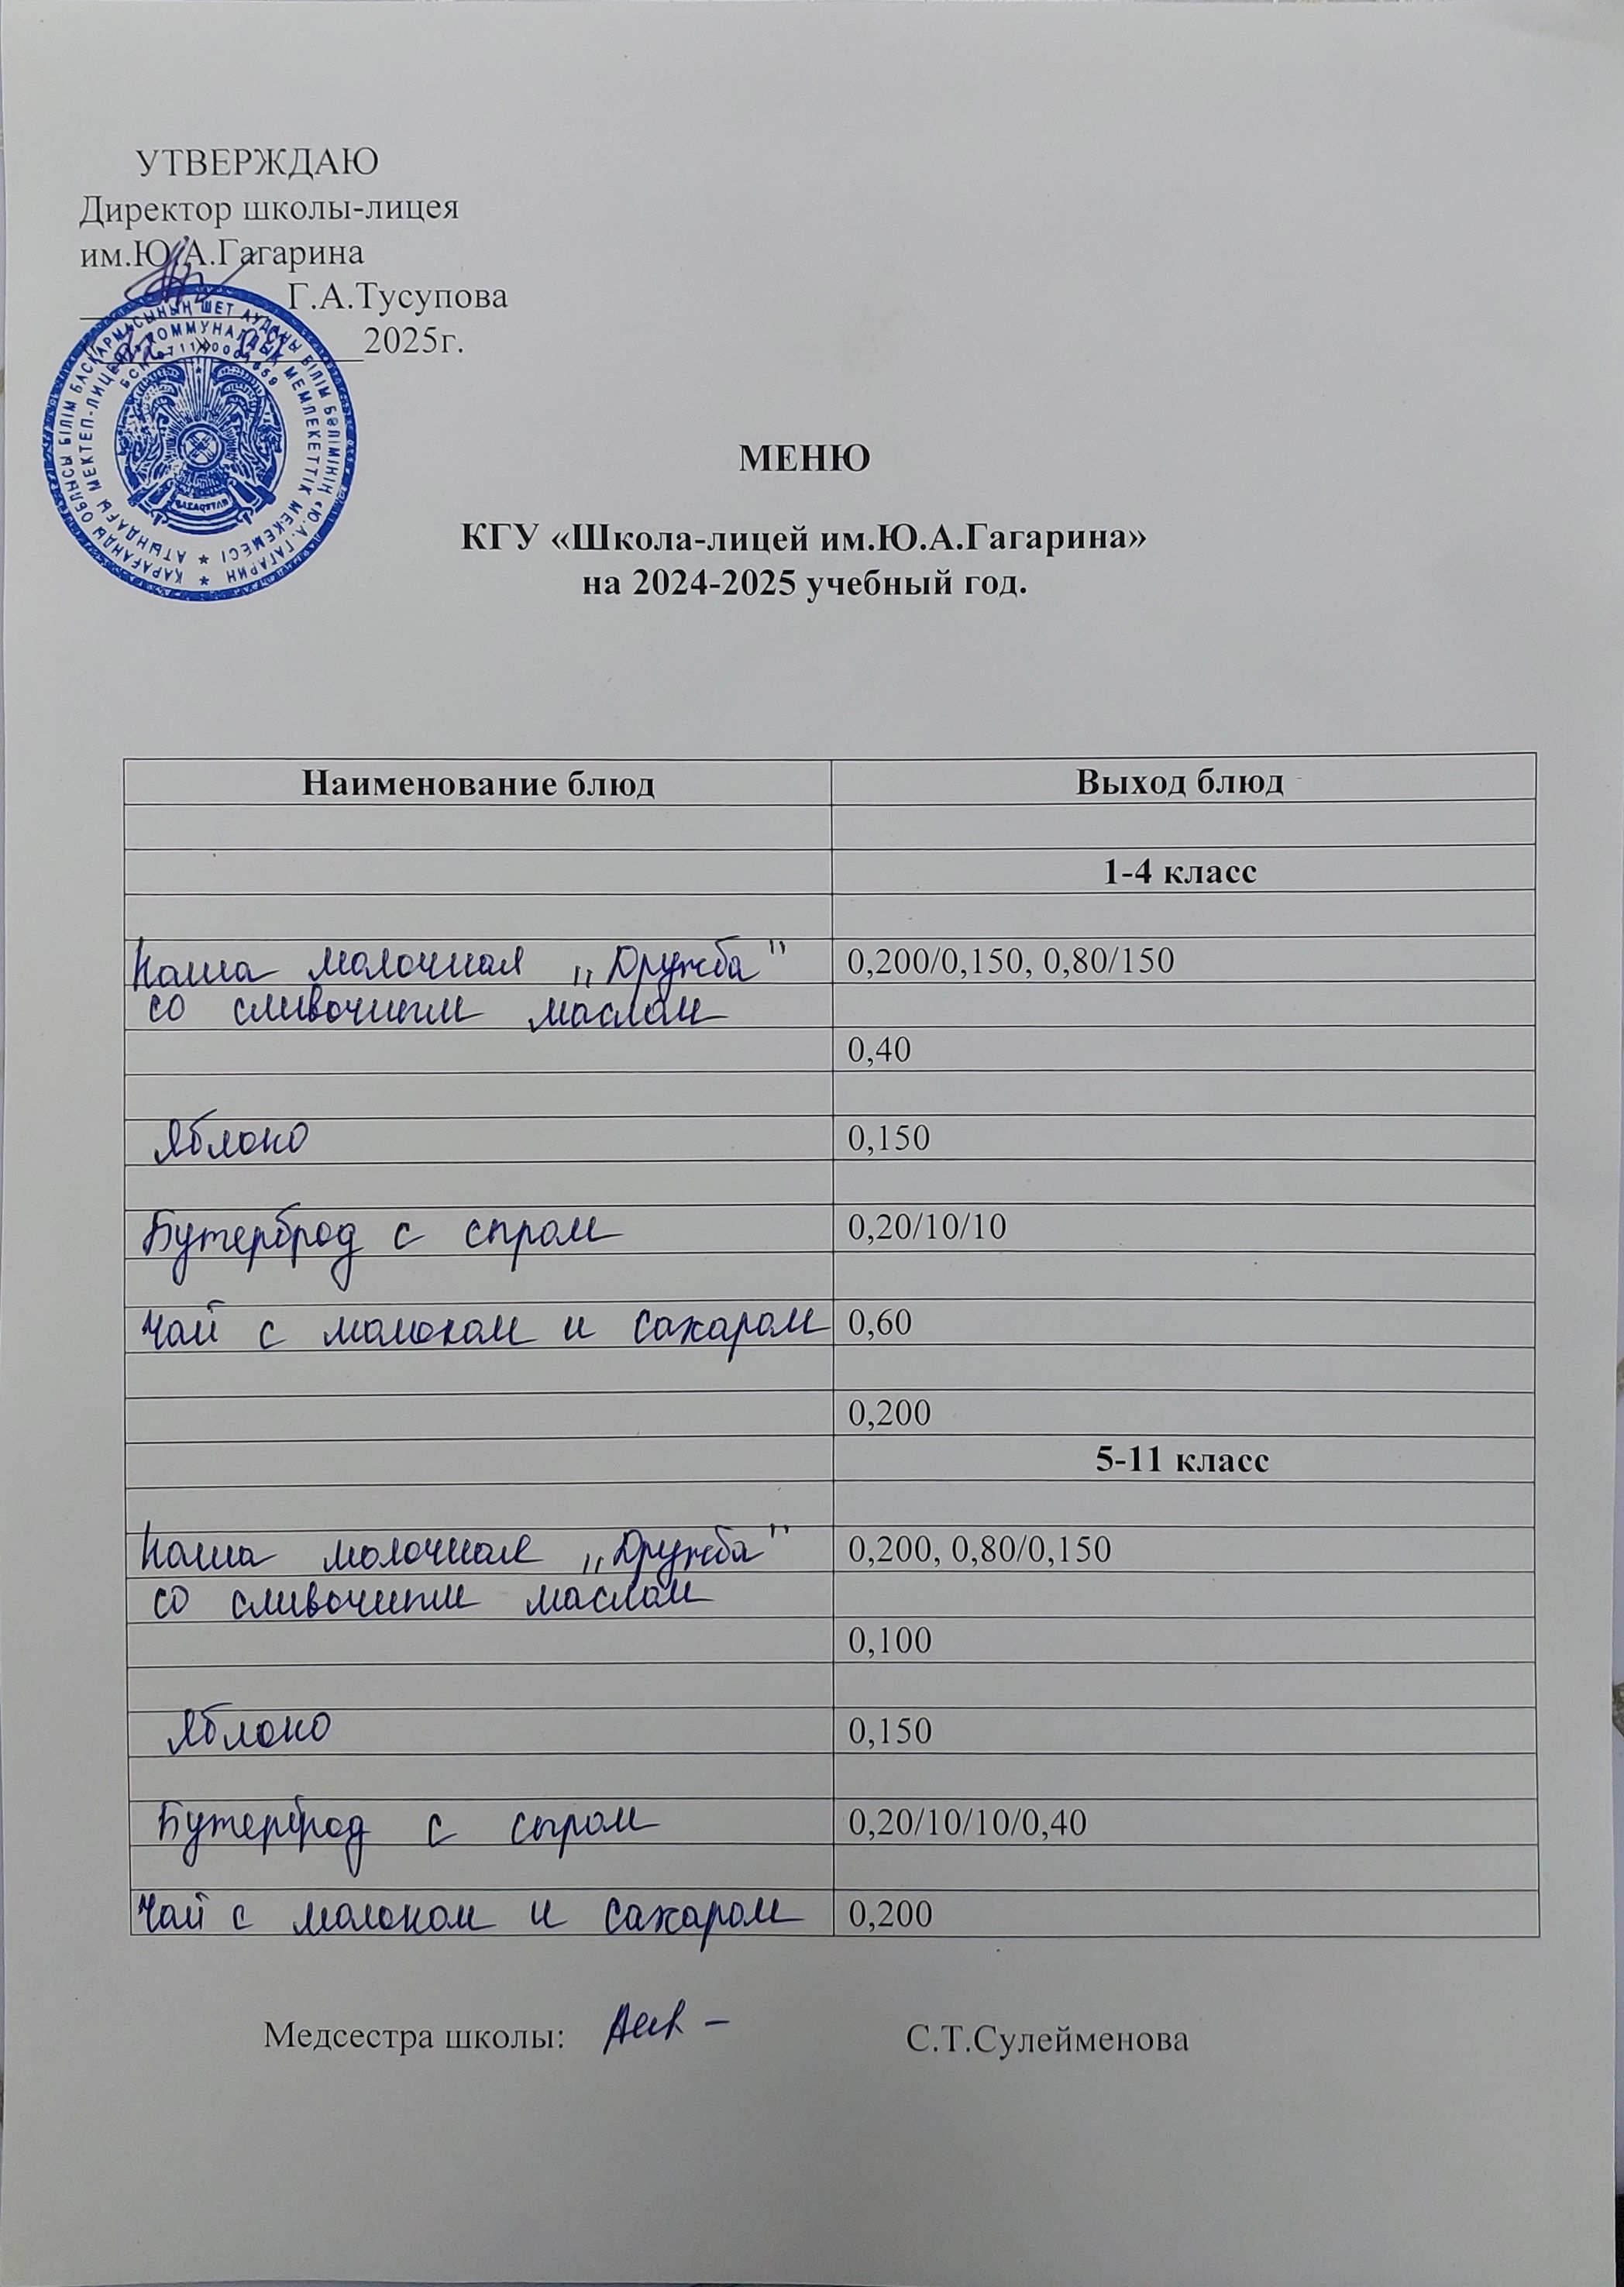 УТВЕРЖДАЮ
Директор школы-лицея
им.Ю.А.Гагарина
Г.А.Тусупова
2025г.
ҚАРАҒАНДЫ ОБЛЫСЫ БІЛІМ БАСҚАРМАСЫНЫҢ ШЕТ АУДАНЫ БІЛІМ БӨЛІМІНІҢ «Ю.А. ГАГАРИН
АТЫНДАҒЫ МЕКТЕП-ЛИЦЕЙІ» КОММУНАЛДЫҚ МЕМЛЕКЕТТІК МЕКЕМЕСІ
МЕНЮ
КГУ «Школа-лицей им.Ю.А.Гагарина»
на 2024-2025 учебный год.
Наименование блюд Выход блюд
1-4 класс
Каша молочная „Дружба" 0,200/0,150, 0,80/150
со сливочным маслом
0,40
Яблоко 0,150
Бутерброд с сыром 0,20/10/10
Чай с молоком и сахаром 0,60
0,200
5-11 класс
Каша молочная „Дружба" 0,200, 0,80/0,150
со сливочным маслом
0,100
Яблоко 0,150
Бутерброд с сыром 0,20/10/10/0,40
Чай с молоком и сахаром 0,200
Медсестра школы: С.Т.Сулейменова